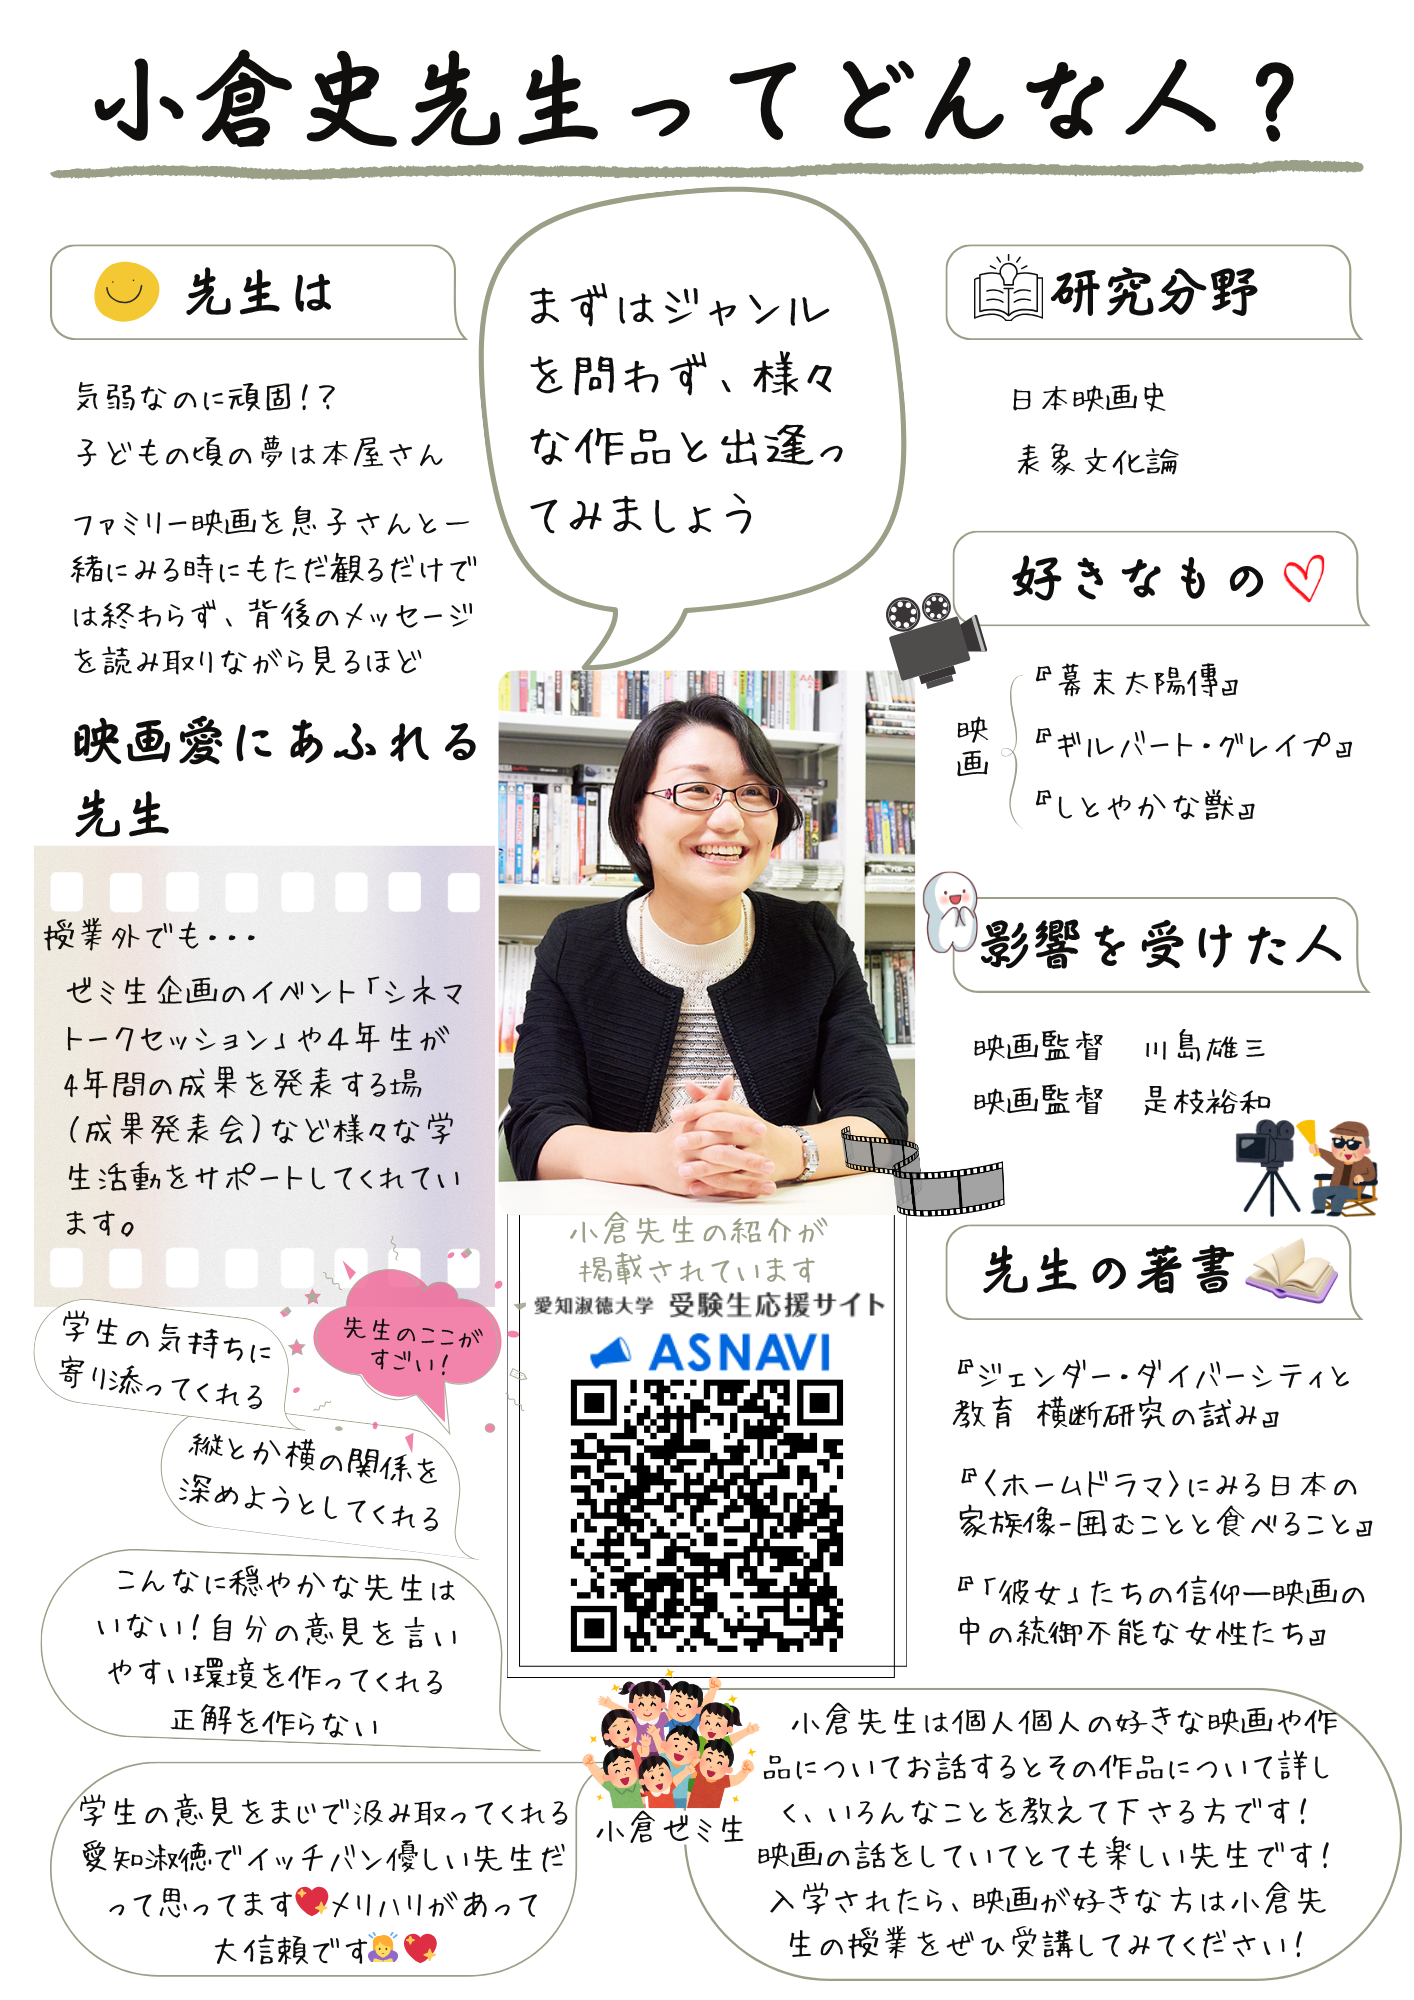 小倉史先生ってどんな人？
先生は
気弱なのに頑固！？
子どもの頃の夢は本屋さん
ファミリー映画を息子さんと一
緒にみる時にもただ観るだけで
は終わらず、背後のメッセージ
を読み取りながら見るほど
映画愛にあふれる
先生
授業外でも・・・
ゼミ生企画のイベント「シネマ
トークセッション」や４年生が
４年間の成果を発表する場
（成果発表会）など様々な学
生活動をサポートしてくれてい
ます。
先生のここが
すごい！
学生の気持ちに
寄り添ってくれる
縦とか横の関係を
深めようとしてくれる
こんなに穏やかな先生は
いない！自分の意見を言い
やすい環境を作ってくれる
正解を作らない
学生の意見をまじで汲み取ってくれる
愛知淑徳でイッチバン優しい先生だ
って思ってます💖メリハリがあって
大信頼です🙇‍♀️💖
まずはジャンル
を問わず、様々
な作品と出逢っ
てみましょう
小倉先生の紹介が
掲載されています
愛知淑徳大学 受験生応援サイト
ASNAVI
研究分野
日本映画史
表象文化論
好きなもの
映
画
『幕末太陽傳』
『ギルバート・グレイプ』
『しとやかな獣』
影響を受けた人
映画監督　川島雄三
映画監督　是枝裕和
先生の著書
『ジェンダー・ダイバーシティと
教育　横断研究の試み』
『〈ホームドラマ〉にみる日本の
家族像-囲むことと食べること』
『「彼女」たちの信仰―映画の
中の統御不能な女性たち』
小倉ゼミ生
小倉先生は個人個人の好きな映画や作
品についてお話するとその作品について詳し
く、いろんなことを教えて下さる方です！
映画の話をしていてとても楽しい先生です！
入学されたら、映画が好きな方は小倉先
生の授業をぜひ受講してみてください！